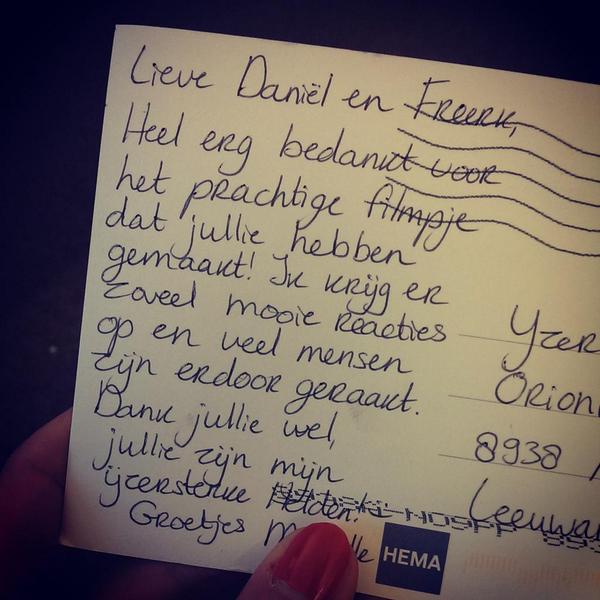 Lieve Daniël en Freerk,
Heel erg bedankt voor
het prachtige filmpje
dat jullie hebben
gemaakt! Ik krijg er
zoveel mooie reacties
op en veel mensen
zijn erdoor geraakt.
Dank jullie wel,
jullie zijn mijn
ijzersterke Helden!
Groetjes
Yzer
Orion
8938
Leeuwa
HEMA